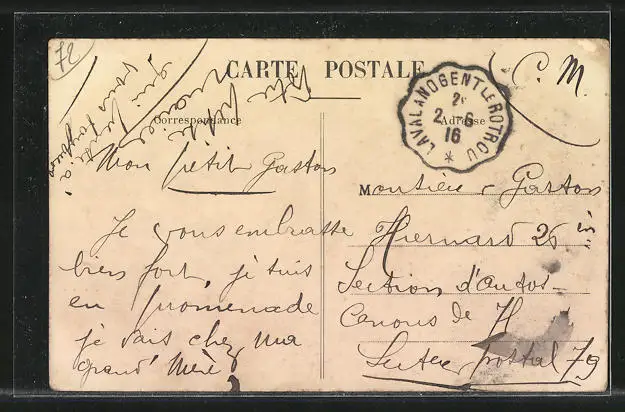 72
CARTE POSTALE
C. M.
LAVAL A NOGENT LE ROTROU
2e
2 - 6
16
Correspondance
Adresse
Mon petit Gaston
Je vous embrasse
bien fort, je suis
en promenade
je vais chez ma
grand' mère
Monsieur Gaston
Hiernard 26 in
Section d'autos-
Canons de
Secteur postal 79